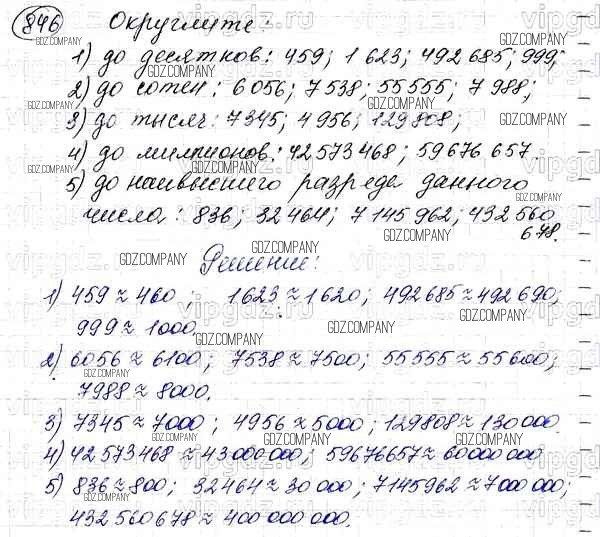 846 Округлите:
1) до десятков: 459; 1 623; 492 685; 999;
2) до сотен: 6 056; 7 538; 55 555; 7 988;
3) до тысяч: 7 345; 4 956; 129 808;
4) до миллионов: 42 573 468; 59 676 657.
5) до наивысшего разряда данного
числа: 836; 32 464; 7 145 962; 432 560
678.
Решение:
1) 459 ≈ 460; 1 623 ≈ 1 620; 492 685 ≈ 492 690;
999 ≈ 1000.
2) 6056 ≈ 6100; 7538 ≈ 7500; 55555 ≈ 55600;
7988 ≈ 8000.
3) 7345 ≈ 7000; 4956 ≈ 5000; 129808 ≈ 130 000.
4) 42 573 468 ≈ 43 000 000; 59676657 ≈ 60 000 000
5) 836 ≈ 800; 32 464 ≈ 30 000; 7145962 ≈ 7 000 000;
432 560 678 ≈ 400 000 000.